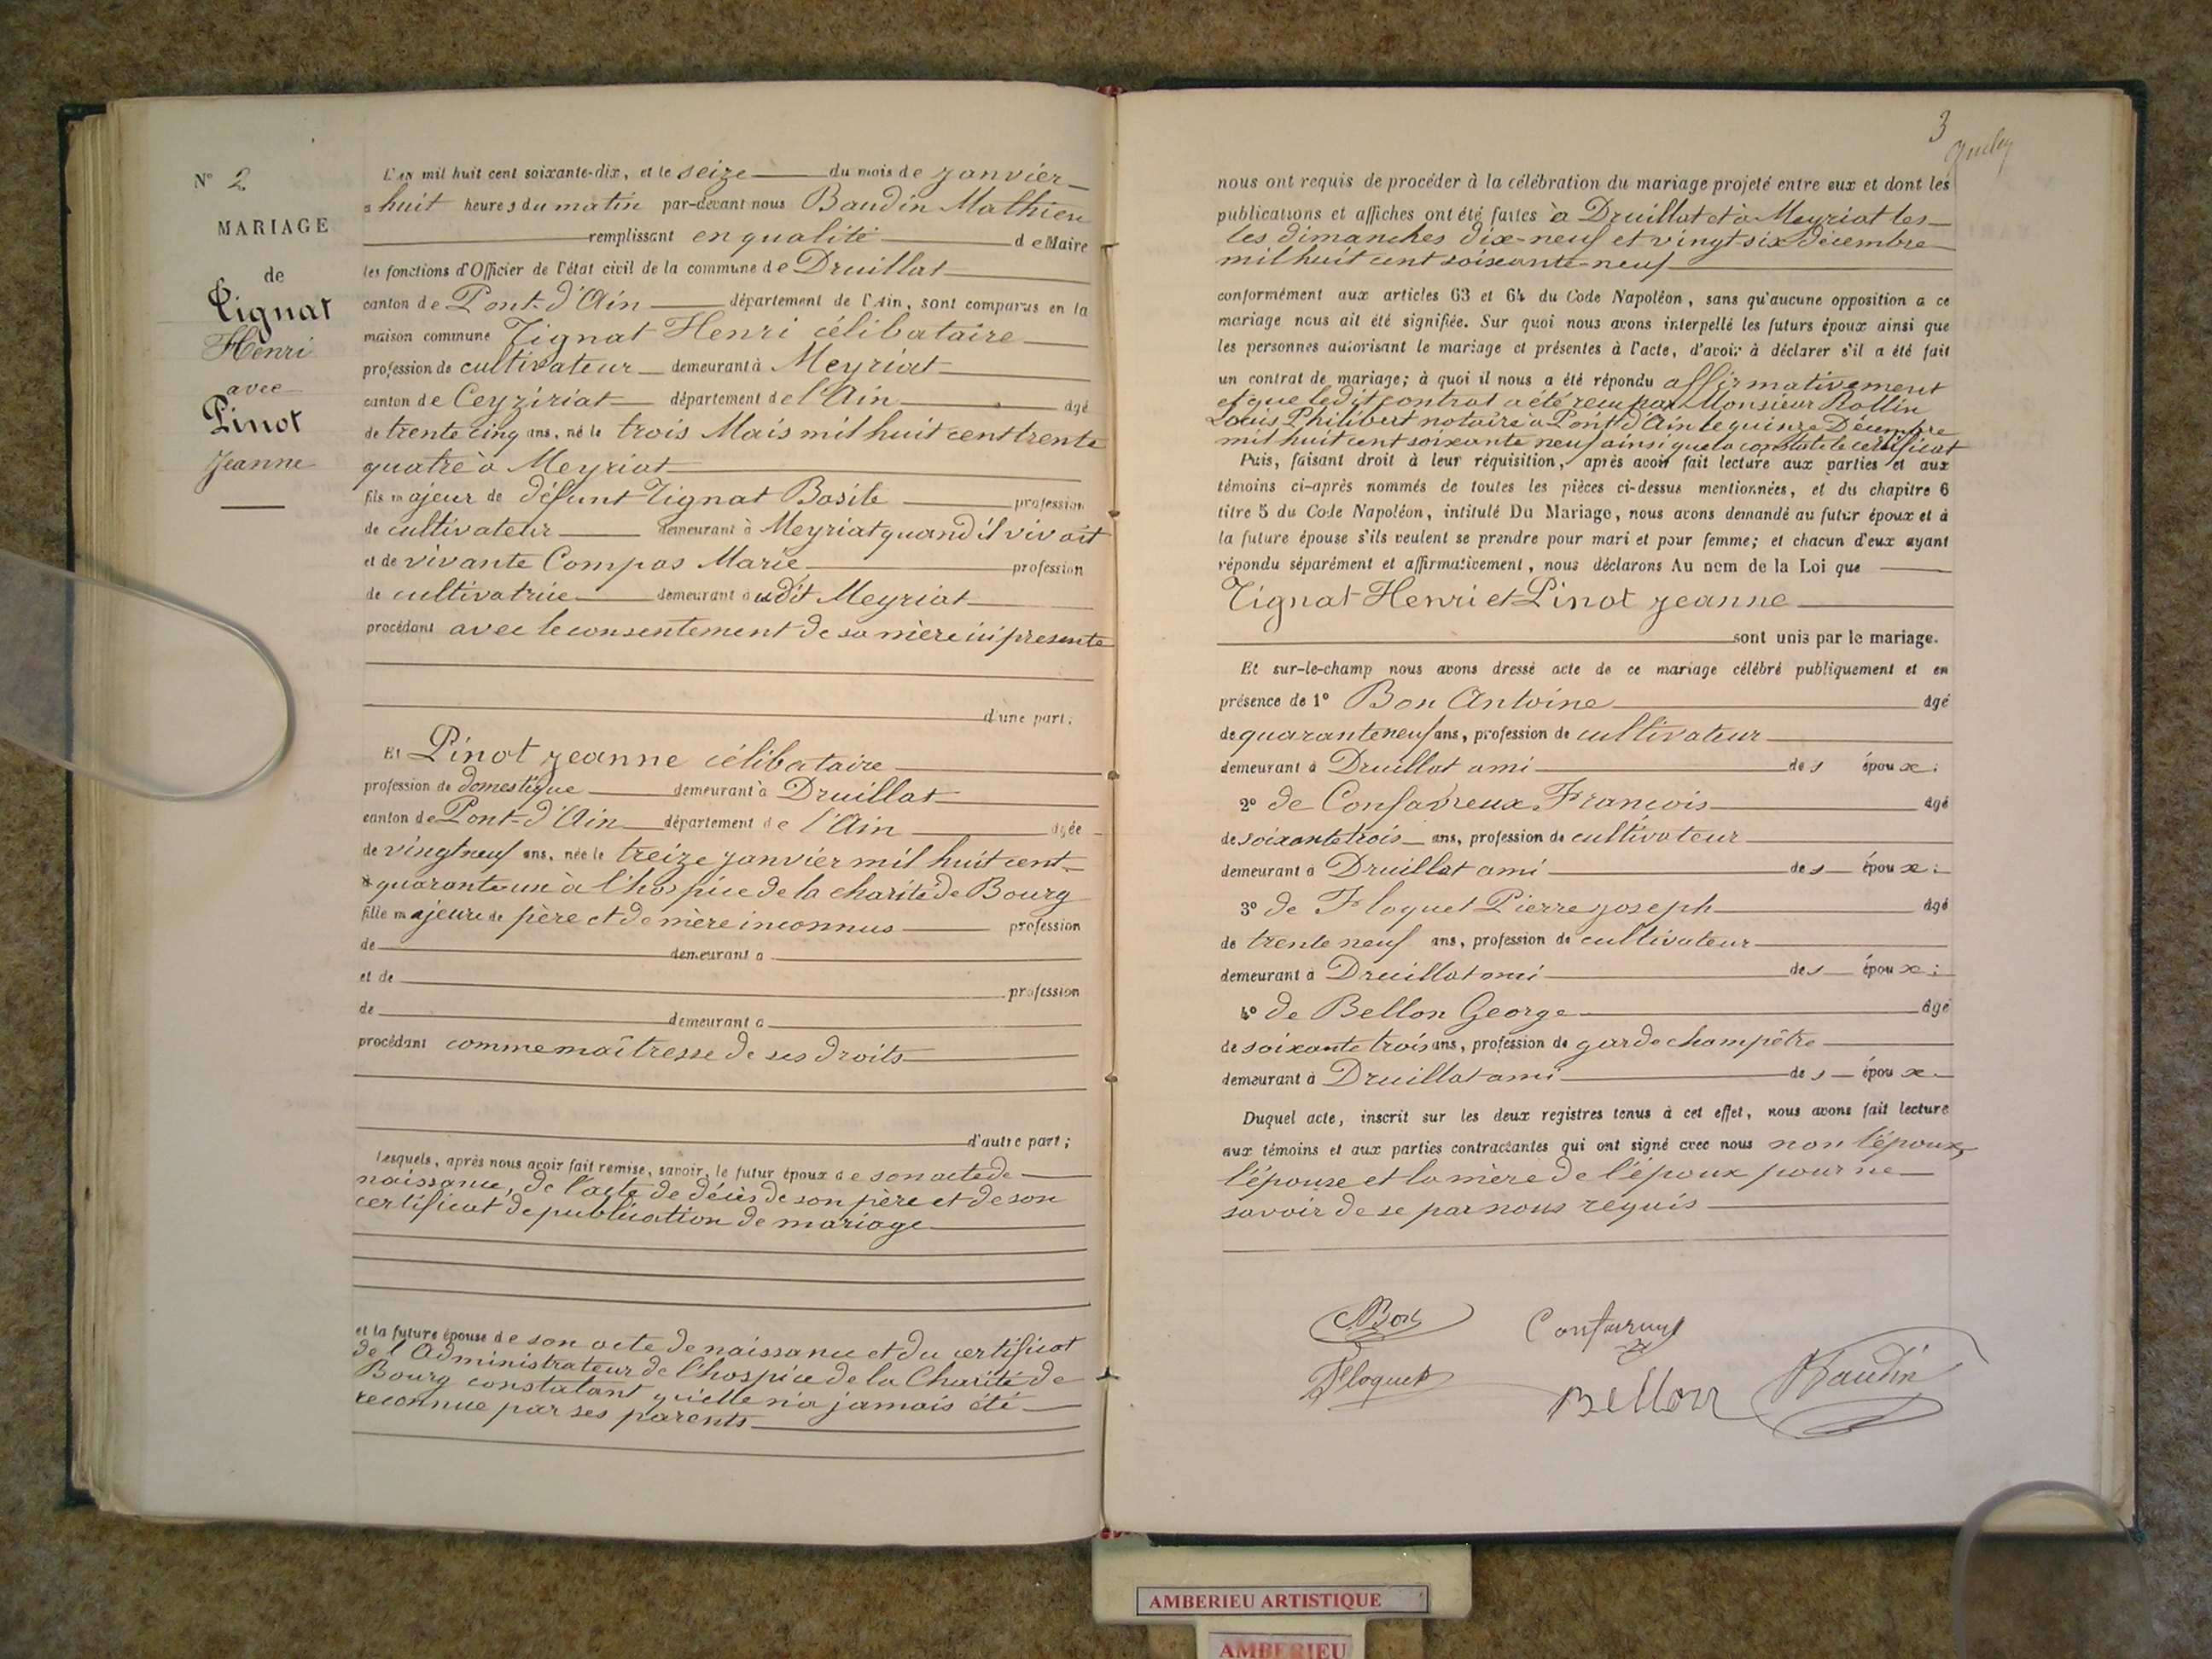 N° 2
MARIAGE
de
Tignat
Henri
avec
Pinot
Jeanne
L'an mil huit cent soixante-dix, et le seize du mois de janvier
a huit heures du matin par-devant nous Baudin Mathieu
remplissant en qualité de Maire
les fonctions d'Officier de l'état civil de la commune de Druillat
canton de Pont-d'Ain département de l'Ain, sont comparus en la
maison commune Tignat Henri célibataire
profession de cultivateur demeurant à Meyriat
canton de Ceyziriat département de l'Ain âgé
de trente cinq ans, né le trois Mais mil huit cent trente
quatre à Meyriat
fils majeur de défunt Tignat Basile profession
de cultivateur demeurant à Meyriat quand il vivait
et de vivante Compas Marie profession
de cultivatrice demeurant audit Meyriat
procédant avec le consentement de sa mère ici présente
d'une part;
Et Pinot Jeanne célibataire
profession de domestique demeurant à Druillat
canton de Pont-d'Ain département de l'Ain âgée
de vingt neuf ans, née le treize janvier mil huit cent
quarante un à l'hospice de la charité de Bourg
fille majeure de père et de mère inconnus profession
de demeurant a
et de profession
de demeurant a
procédant comme maîtresse de ses droits
d'autre part;
Lesquels, après nous avoir fait remise, savoir, le futur époux de son acte de
naissance, de l'acte de décès de son père et de son
certificat de publication de mariage
et la future épouse de son acte de naissance et du certificat
de l'Administrateur de l'hospice de la Charité de
Bourg constatant qu'elle n'a jamais été
reconnue par ses parents
3
nous ont requis de procéder à la célébration du mariage projeté entre eux et dont les
publications et affiches ont été faites à Druillat et à Meyriat les
les dimanches dix-neuf et vingt-six décembre
mil huit cent soixante-neuf
conformément aux articles 63 et 64 du Code Napoléon, sans qu'aucune opposition a ce
mariage nous ait été signifiée. Sur quoi nous avons interpellé les futurs époux ainsi que
les personnes autorisant le mariage et présentes à l'acte, d'avoir à déclarer s'il a été fait
un contrat de mariage; à quoi il nous a été répondu affirmativement
et que ledit contrat a été reçu par Monsieur Rollin
Louis Philibert notaire à Pont d'Ain le quinze Décembre
mil huit cent soixante neuf ainsi que la constate le certificat
Puis, faisant droit à leur réquisition, après avoir fait lecture aux parties et aux
témoins ci-après nommés de toutes les pièces ci-dessus mentionnées, et du chapitre 6
titre 5 du Code Napoléon, intitulé Du Mariage, nous avons demandé au futur époux et à
la future épouse s'ils veulent se prendre pour mari et pour femme; et chacun d'eux ayant
répondu séparément et affirmativement, nous déclarons Au nom de la Loi que
Tignat Henri et Pinot Jeanne
sont unis par le mariage.
Et sur-le-champ nous avons dressé acte de ce mariage célébré publiquement et en
présence de 1° Bon Antoine âgé
de quarante neuf ans, profession de cultivateur
demeurant à Druillat ami des époux;
2° de Confavreux François âgé
de soixante trois ans, profession de cultivateur
demeurant à Druillat ami des époux;
3° de Floquet Pierre Joseph âgé
de trente neuf ans, profession de cultivateur
demeurant à Druillat ami des époux;
4° de Bellon George âgé
de soixante trois ans, profession de garde champêtre
demeurant à Druillat ami des époux
Duquel acte, inscrit sur les deux registres tenus à cet effet, nous avons fait lecture
aux témoins et aux parties contractantes qui ont signé avec nous non l'époux,
l'épouse et la mère de l'époux pour ne
savoir de se par nous requis
Bon
Floquet
Bellon
Baudin
AMBERIEU ARTISTIQUE
AMBERIEU